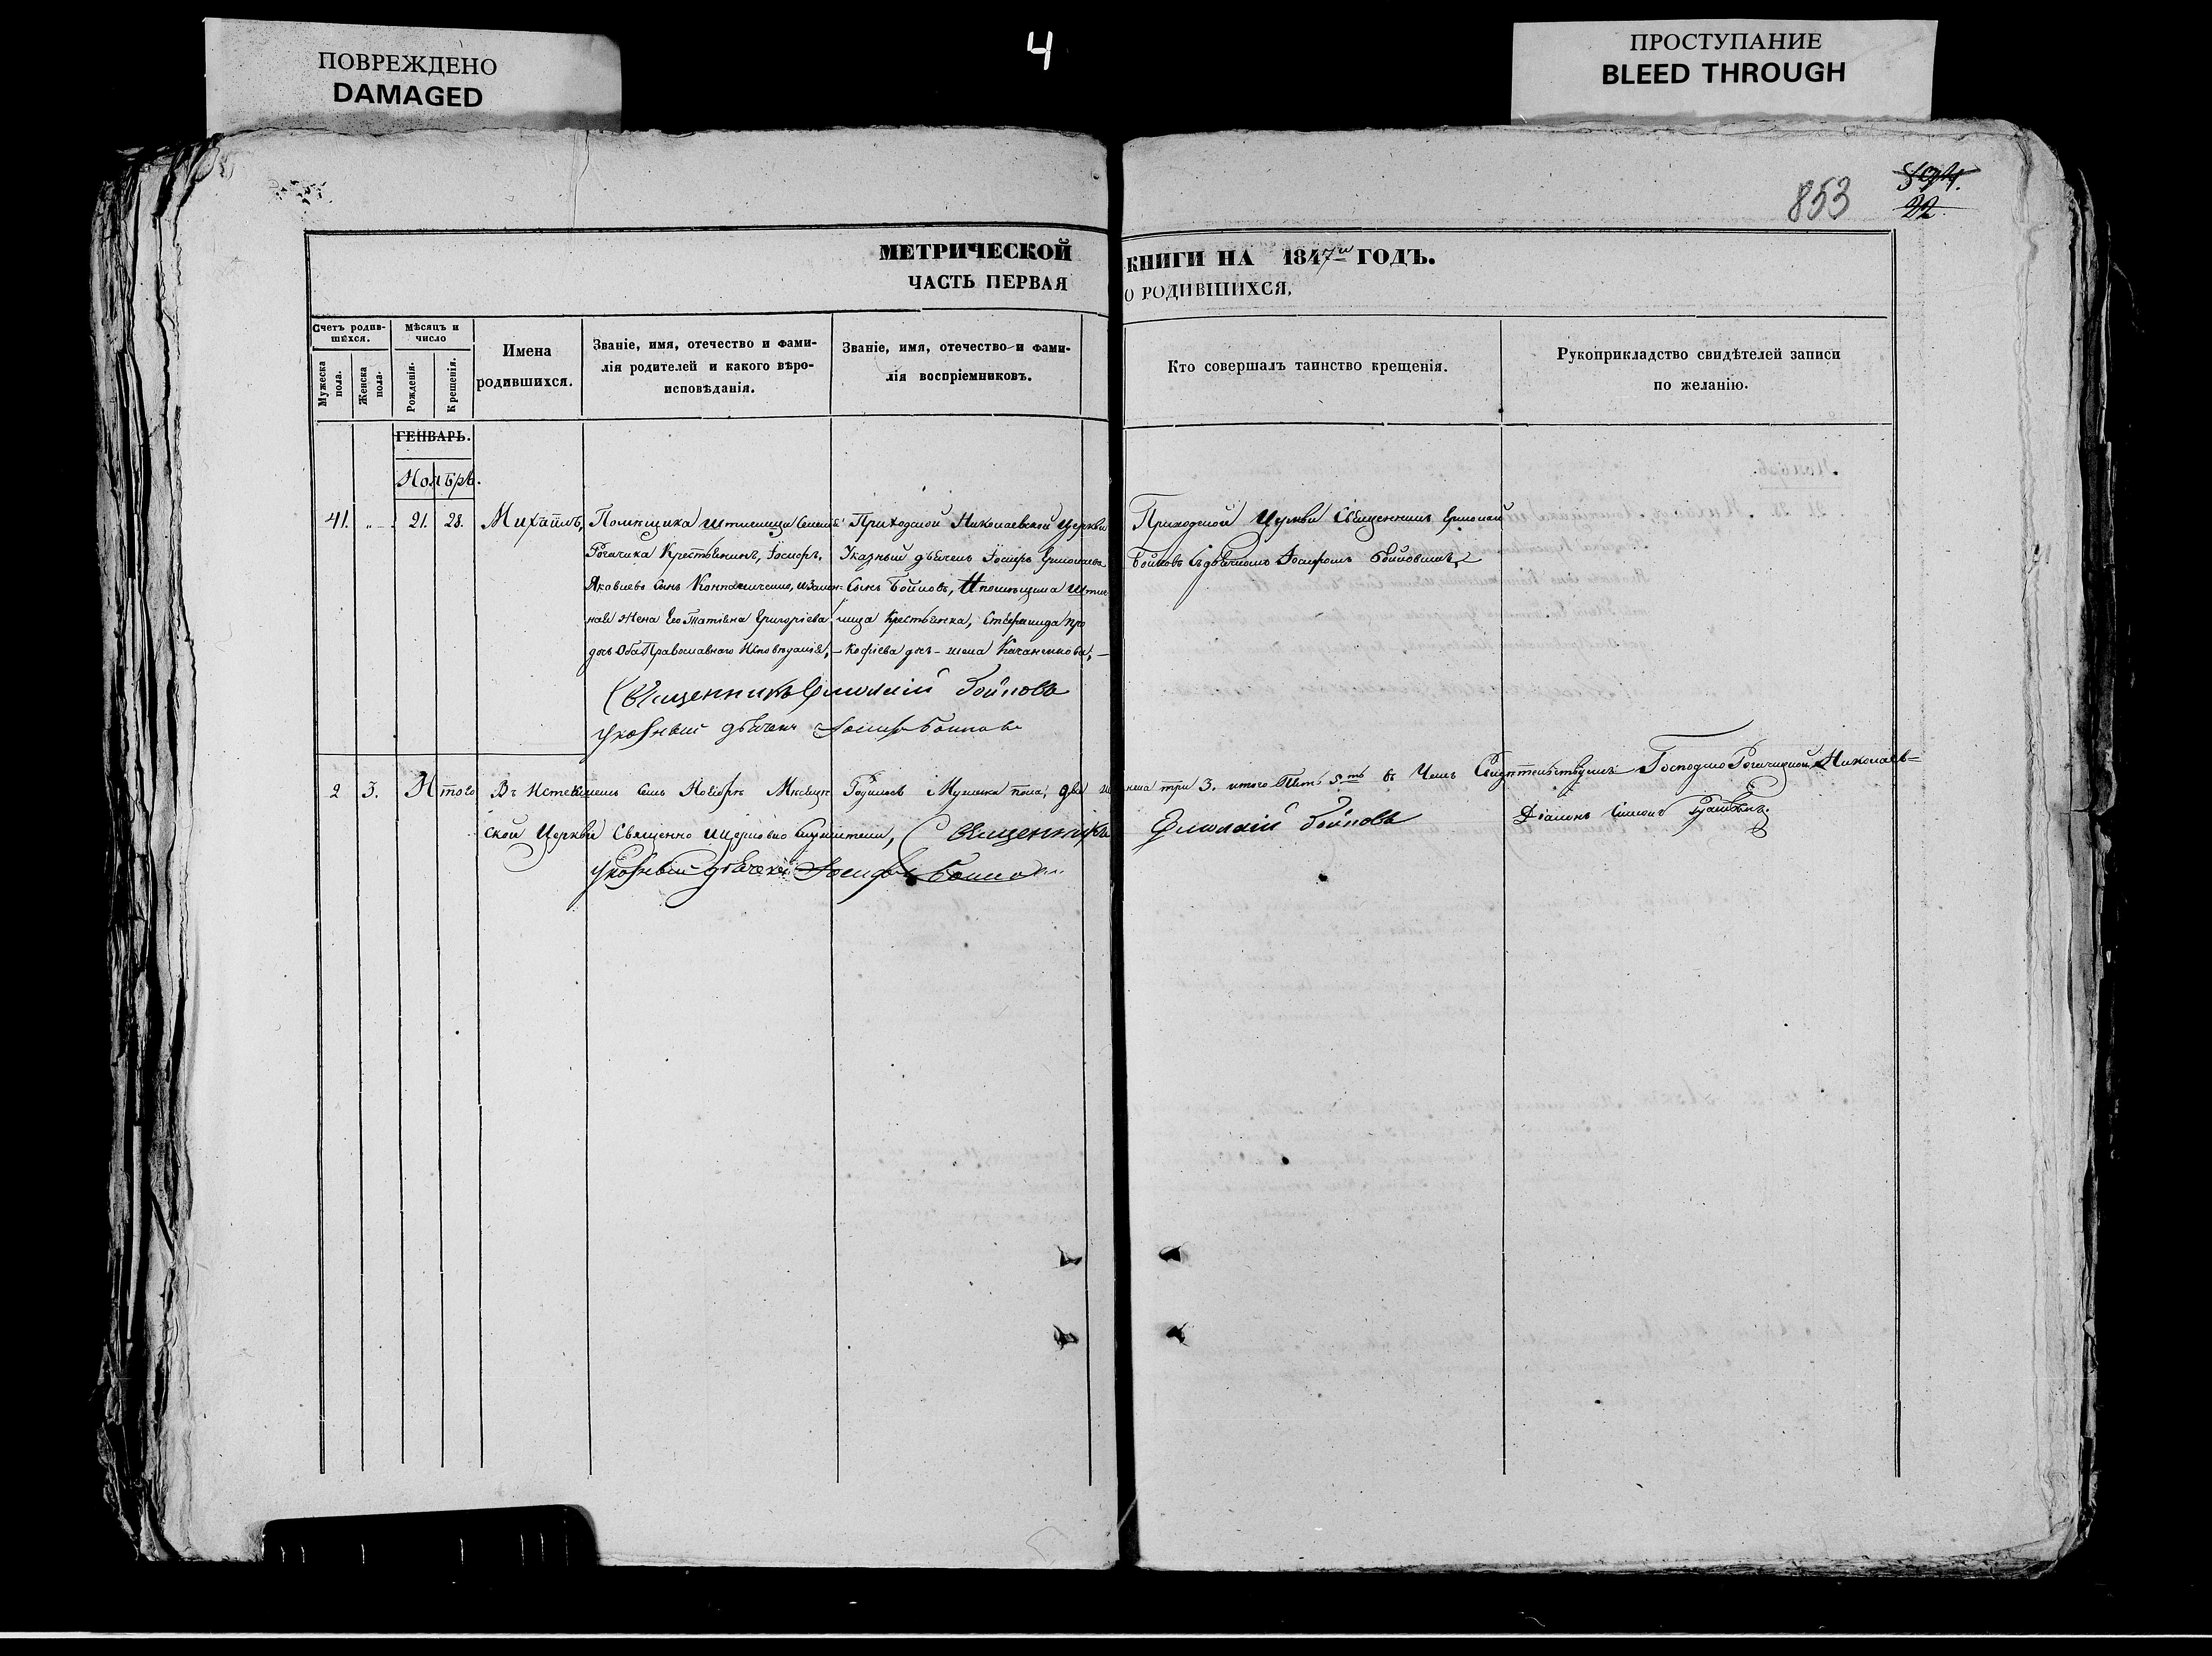 ПОВРЕЖДЕНО
DAMAGED
4
ПРОСТУПАНИЕ
BLEED THROUGH
853
22.
МЕТРИЧЕСКОЙ КНИГИ НА 1847й ГОДЪ.
ЧАСТЬ ПЕРВАЯ О РОДИВШИХСЯ,
Счетъ родив-
шихся.
Мужеска пола.
Женска пола.
Мѣсяцъ и
число
Рожденія.
Крещенія.
Имена
родившихся.
Званіе, имя, отечество и фами-
лія родителей и какого вѣро-
исповѣданія.
Званіе, имя, отечество и фами-
лія воспріемниковъ.
Кто совершалъ таинство крещенія.
Рукоприкладство свидѣтелей записи
по желанію.
ГЕНВАРЬ.
Ноябрь.
41. 21. 28. Михаилъ,
Помѣщика Штиглица Селенія
Рогачика Крестьянинъ, Іосифъ
Яковлевъ Сынъ и закон-
ная Жена Его Татіана Григоріева
дочь Оба Православнаго Исповѣданія,
Приходской Николаевской Церкви
Указный дьячекъ Іосифъ Ермолаевъ
Сынъ Бойковъ, И помѣщика Штиг-
лица Крестьянка, Про
кофіева дочь
Приходской Церкви Священникъ Ермолай
Бойковъ съ дьячкомъ Іосифомъ Бойковымъ
Священникъ Ермолай Бойковъ
Указный дьячекъ Іосифъ Бойковъ
2 3. Итого Въ Истекшемъ Семъ Ноябрѣ Мѣсяцѣ Родилось Мужеска пола, два женска три 3. итого Пять 5.ть въ Чемъ Свидѣтельствуемъ Рогачицкой Николаев=
ской Церкви Священно Церковно Служители, Священникъ Ермолай Бойковъ
Діаконъ
Указный дьячекъ Іосифъ Бойковъ